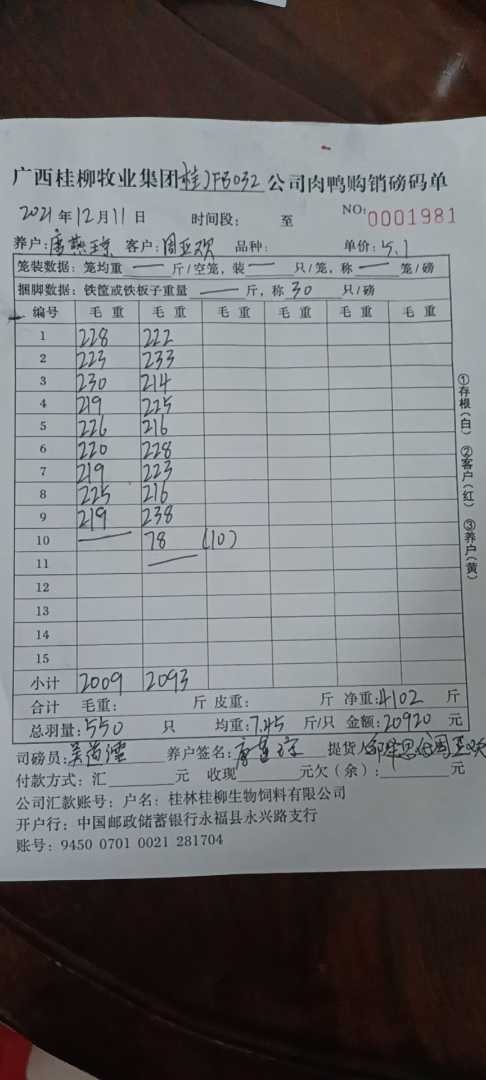 广西桂柳牧业集团桂JFB032公司肉鸭购销磅码单
2021年12月11日 时间段: 至 NO: 0001981
养户: 唐燕琼 客户: 周亚欢 品种: 单价: 5.1
笼装数据: 笼均重 — 斤/空笼, 装 — 只/笼, 称 — 笼/磅
捆脚数据: 铁筐或铁板子重量 — 斤, 称 30 只/磅
编号 毛重 毛重 毛重 毛重 毛重 毛重
1 228 222
2 223 233
3 230 214
4 219 225
5 226 216
6 220 228
7 219 223
8 225 216
9 219 238
10 — 78 (10)
11 —
12
13
14
15
小计 2009 2093
合计 毛重: 斤 皮重: 斤 净重: 4102 斤
总羽量: 550 只 均重: 7.45 斤/只 金额: 20920 元
司磅员: 养户签名: 提货人: 周亚欢
付款方式: 汇 元 收现 元欠(余): 元
公司汇款账号: 户名: 桂林桂柳生物饲料有限公司
开户行: 中国邮政储蓄银行永福县永兴路支行
账号: 9450 0701 0021 281704
①存根(白) ②客户(红) ③养户(黄)